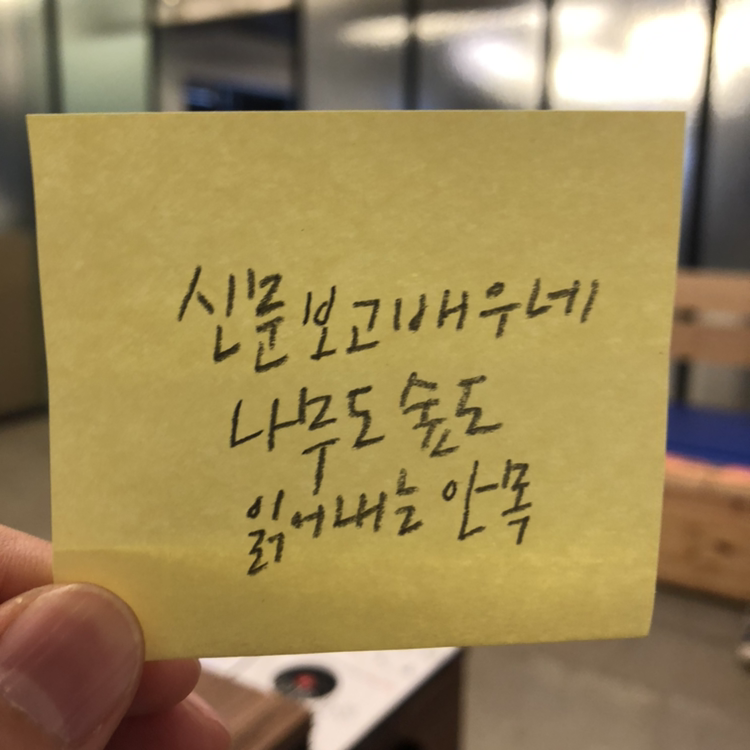 신문보고 배우네
나무도 숲도
읽어내는 안목